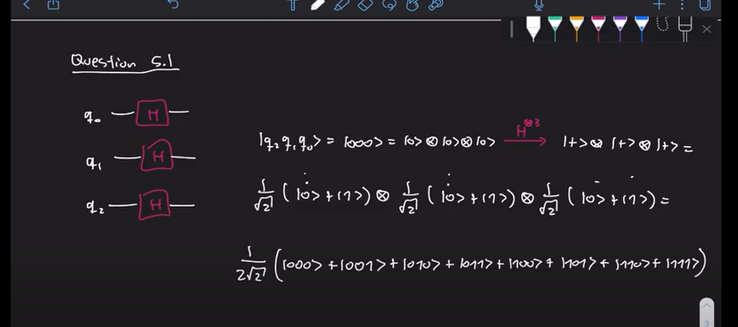 Question 5.1
q₀ H
q₁ H
q₂ H
|q₂q₁q₀> = |000> = |0>⊗|0>⊗|0> H^⊗3 → |+>⊗|+>⊗|+> =
1/√2 (|0>+|1>) ⊗ 1/√2 (|0>+|1>) ⊗ 1/√2 (|0>+|1>) =
1/2√2 (|000>+|001>+|010>+|011>+|100>+|101>+|110>+|111>)